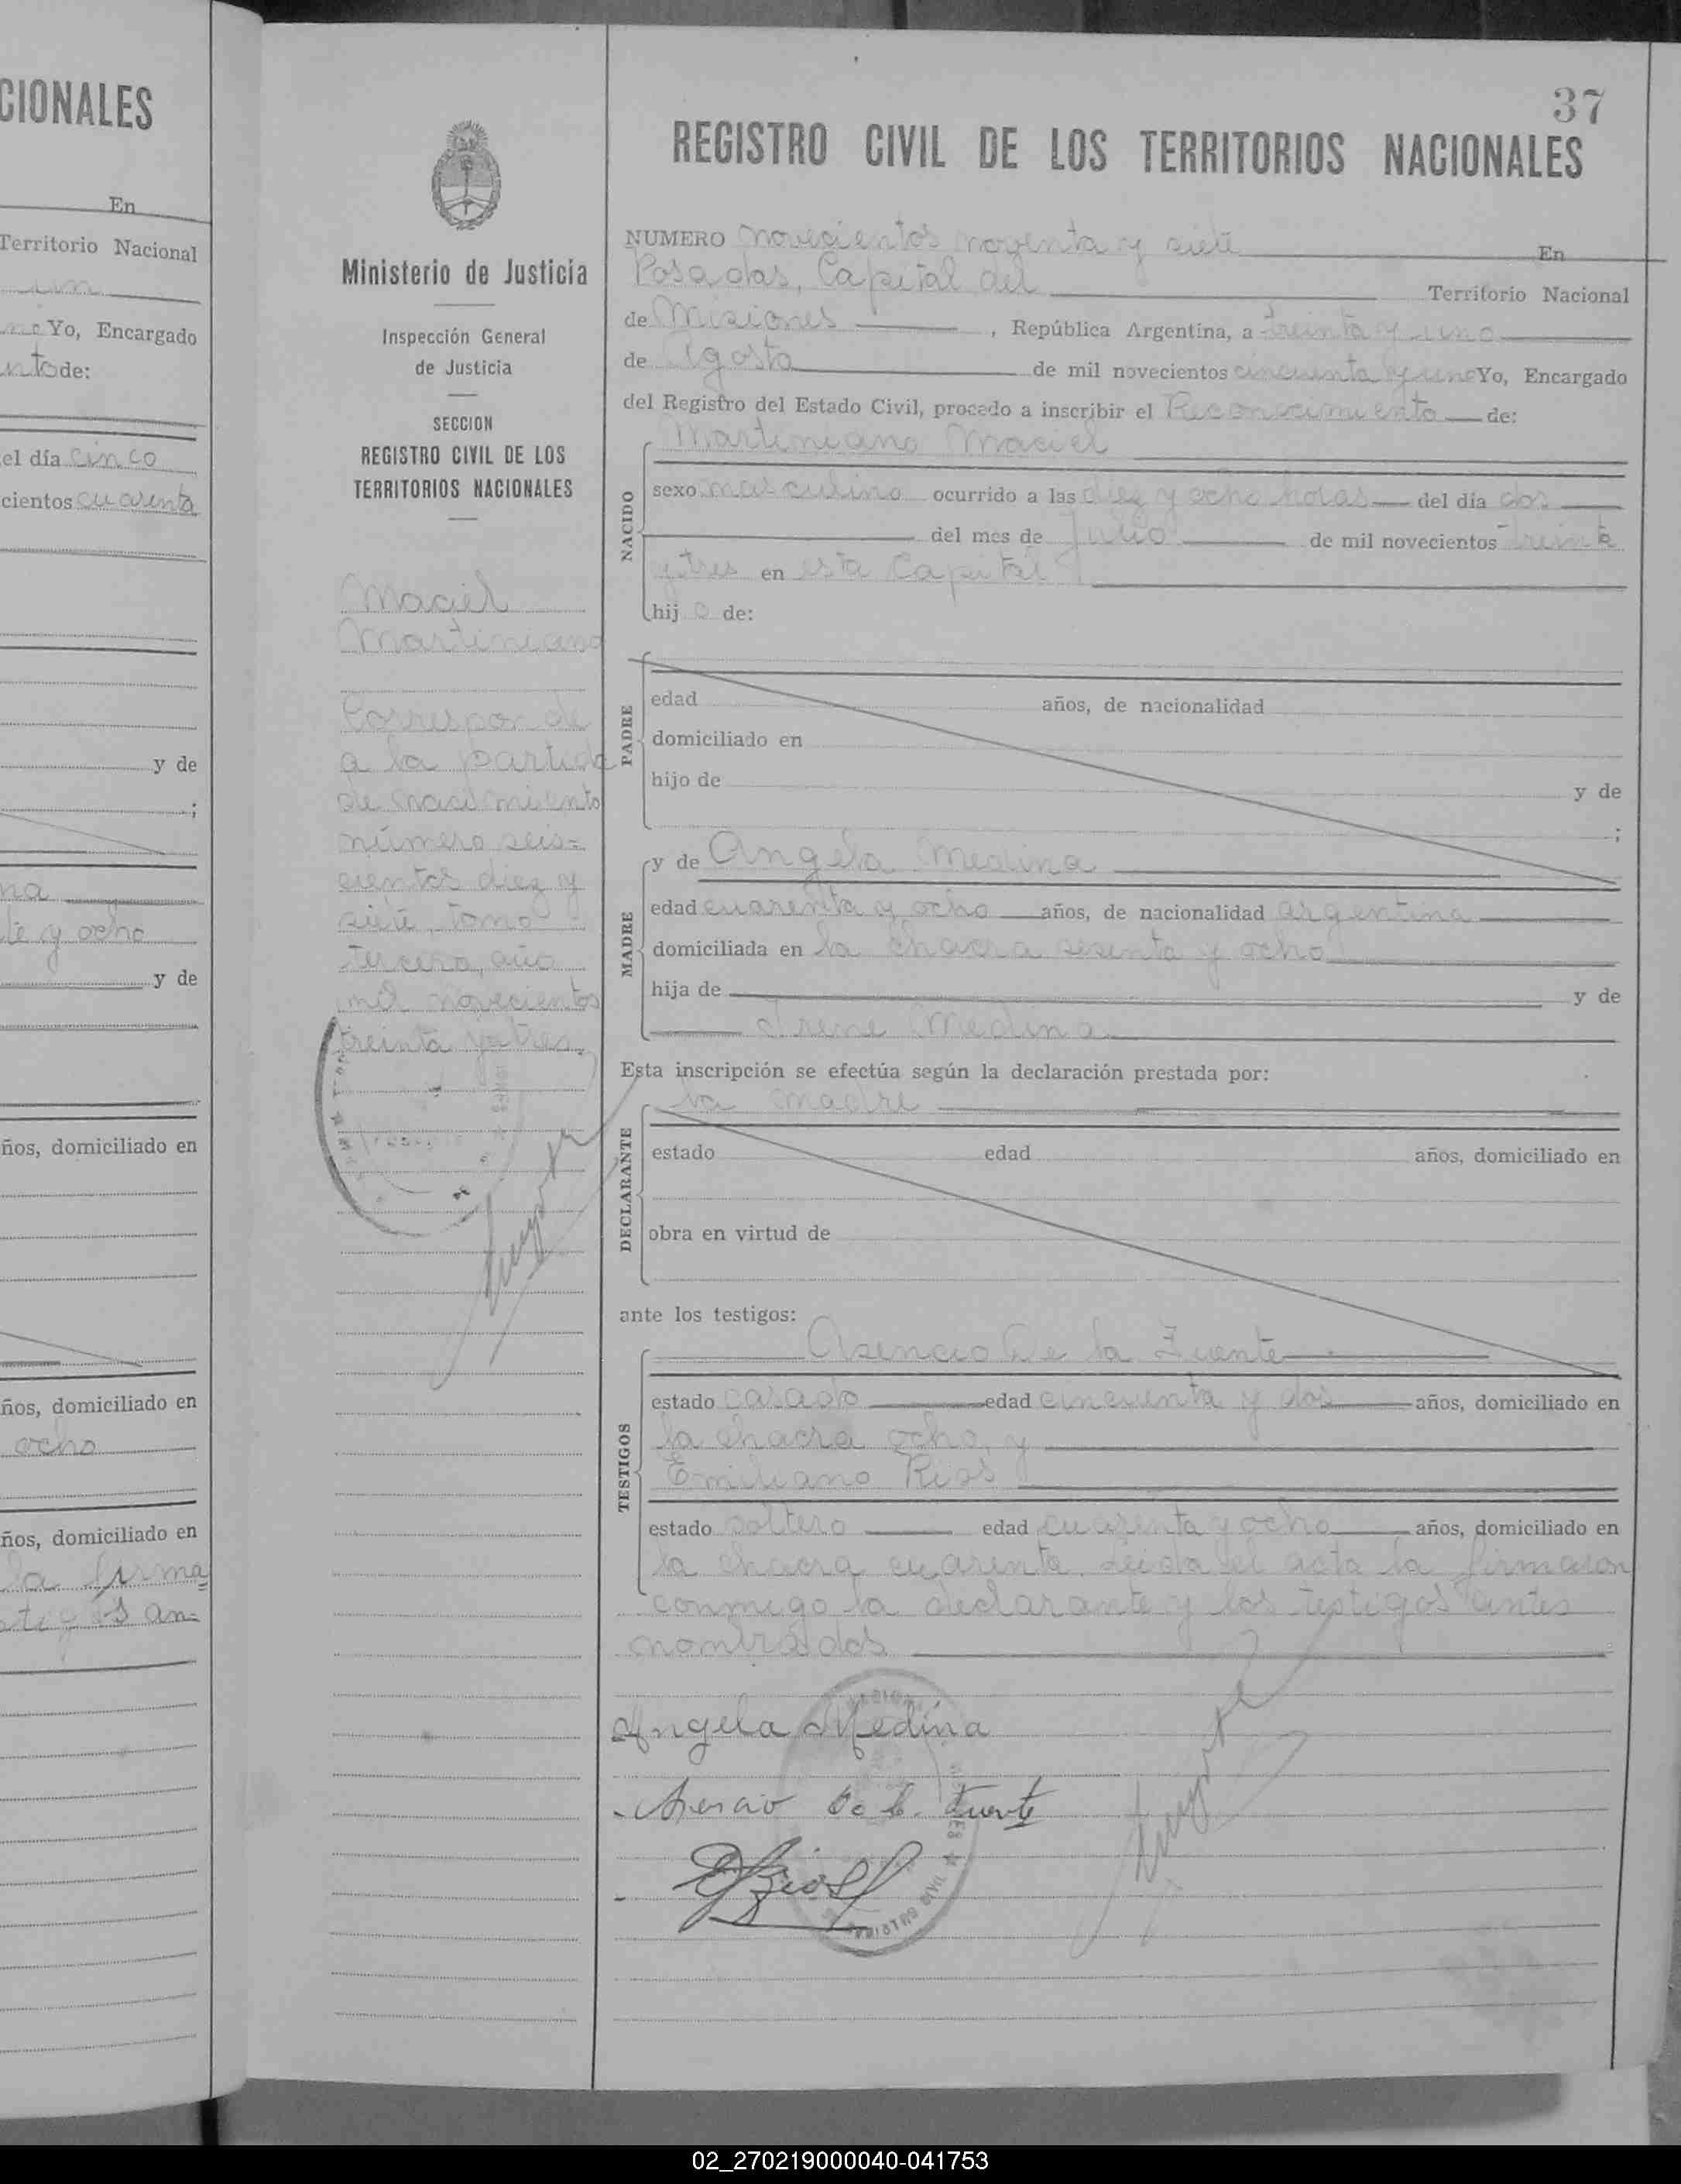 CIONALES
En
Territorio Nacional
Yo, Encargado
nto de:
el día cinco
cientos cuarenta
y de
;
na
te y ocho
y de
ños, domiciliado en
ños, domiciliado en
ocho
ños, domiciliado en
la firma
an=
Ministerio de Justicia
Inspección General
de Justicia
SECCION
REGISTRO CIVIL DE LOS
TERRITORIOS NACIONALES
Maciel
Martiniano
Corresponde
a la partida
de nacimiento
número seis=
cientos diez y
siete, tomo
tercero, año
mil novecientos
treinta y tres.
37
REGISTRO CIVIL DE LOS TERRITORIOS NACIONALES
NUMERO novecientos noventa y siete En
Posadas, Capital del Territorio Nacional
de Misiones, República Argentina, a treinta y uno
de Agosto de mil novecientos cincuenta y uno Yo, Encargado
del Registro del Estado Civil, procedo a inscribir el Reconocimiento de:
NACIDO
Martiniano Maciel
sexo masculino ocurrido a las diez y ocho horas del día dos
del mes de Julio de mil novecientos treinta
y tres en esta Capital
hijo de:
PADRE
edad años, de nacionalidad
domiciliado en
hijo de y de
;
MADRE
y de Angela Medina
edad cuarenta y ocho años, de nacionalidad argentina
domiciliada en la chacra sesenta y ocho
hija de y de
Irene Medina
Esta inscripción se efectúa según la declaración prestada por:
DECLARANTE
la madre
estado edad años, domiciliado en
obra en virtud de
ante los testigos:
TESTIGOS
Asencio De la Fuente
estado casado edad cincuenta y dos años, domiciliado en
la chacra ocho, y
Emiliano Rios
estado soltero edad cuarenta y ocho años, domiciliado en
la chacra cuarenta. Leida el acta la firmaron
conmigo la declarante y los testigos antes
nombrados
Angela Medina
Asencio De l. Fuente
E Rios
REGISTRO CIVIL
02_270219000040-041753